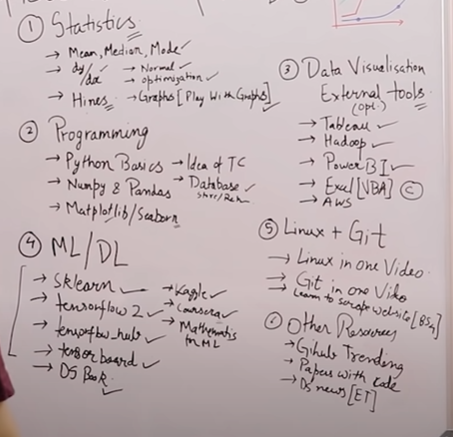 ① Statistics
→ Mean, Median, Mode ✓
→ dy/dx → Normal ✓
→ optimization ✓
→ Hines → Graphs [Play With Graphs]
② Programming
→ Python Basics → Idea of TC
→ Numpy & Pandas → Database ✓
→ Matplotlib/Seaborn
④ ML/DL
→ Sklearn ✓ → Kaggle ✓
→ tensorflow 2 ✓ → Coursera ✓
→ tensorflow_hub ✓ → Mathematics for ML
→ tensorboard ✓
→ DS Book ✓
③ Data Visualisation
External tools
(opt.)
→ Tableau ✓
→ Hadoop ✓
→ Power BI ✓
→ Excel [VBA] ©
→ AWS
⑤ Linux + Git
→ Linux in one Video
→ Git in one Video
→ Learn to scrape website [BS4]
⑥ Other Resources
→ Gihub Trending
→ Papers with code
→ DS news [ET]